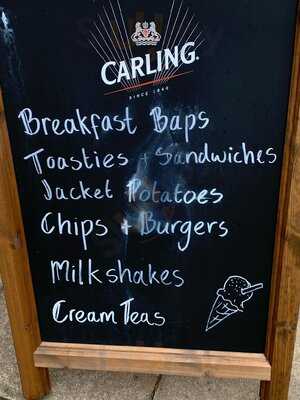 CARLING.
SINCE 1840
Breakfast Baps
Toasties + Sandwiches
Jacket Potatoes
Chips + Burgers
Milkshakes
Cream Teas